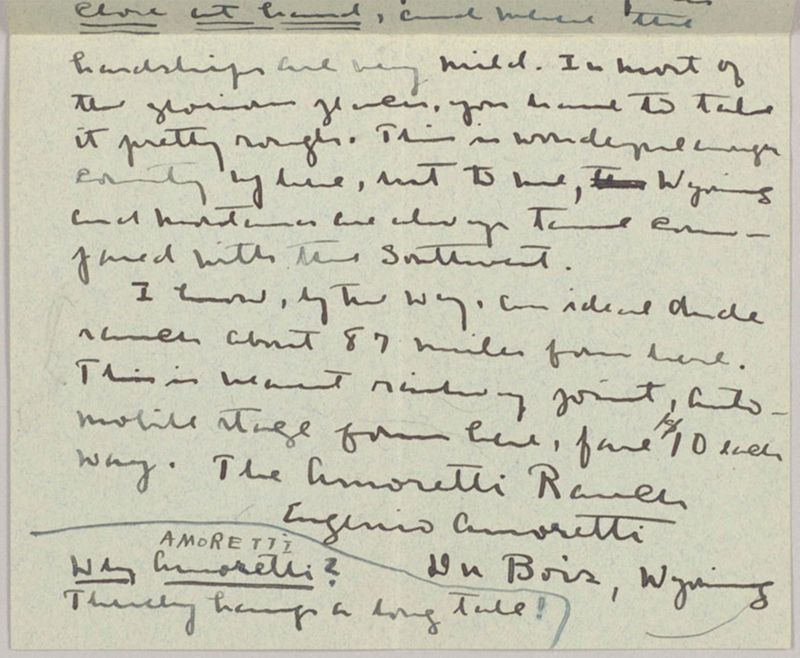 close at hand, and where the
hardships are very mild. In most of
the glorious places, you have to take
it pretty rough. This is wonderful enough
country up here, but to me, Wyoming
and Montana are always tame com-
pared with the Southwest.
I know, by the way, an ideal dude
ranch about 87 miles from here.
This is nearest railway point, auto-
mobile stage from here, fare $10 each
way. The Amoretti Ranch
Eugenio Amoretti
AMORETTI
Why Amoretti?
Du Bois, Wyoming
Thereby hangs a long tale!